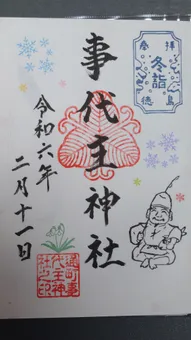 奉拝
冬詣
徳島
事代主神社
令和六年
二月十一日